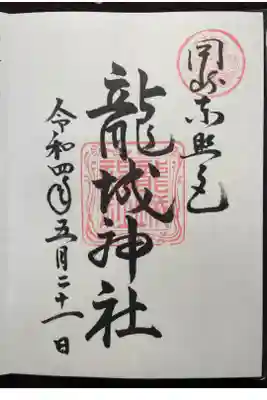 岡崎東照宮
龍城神社
令和四年五月二十一日